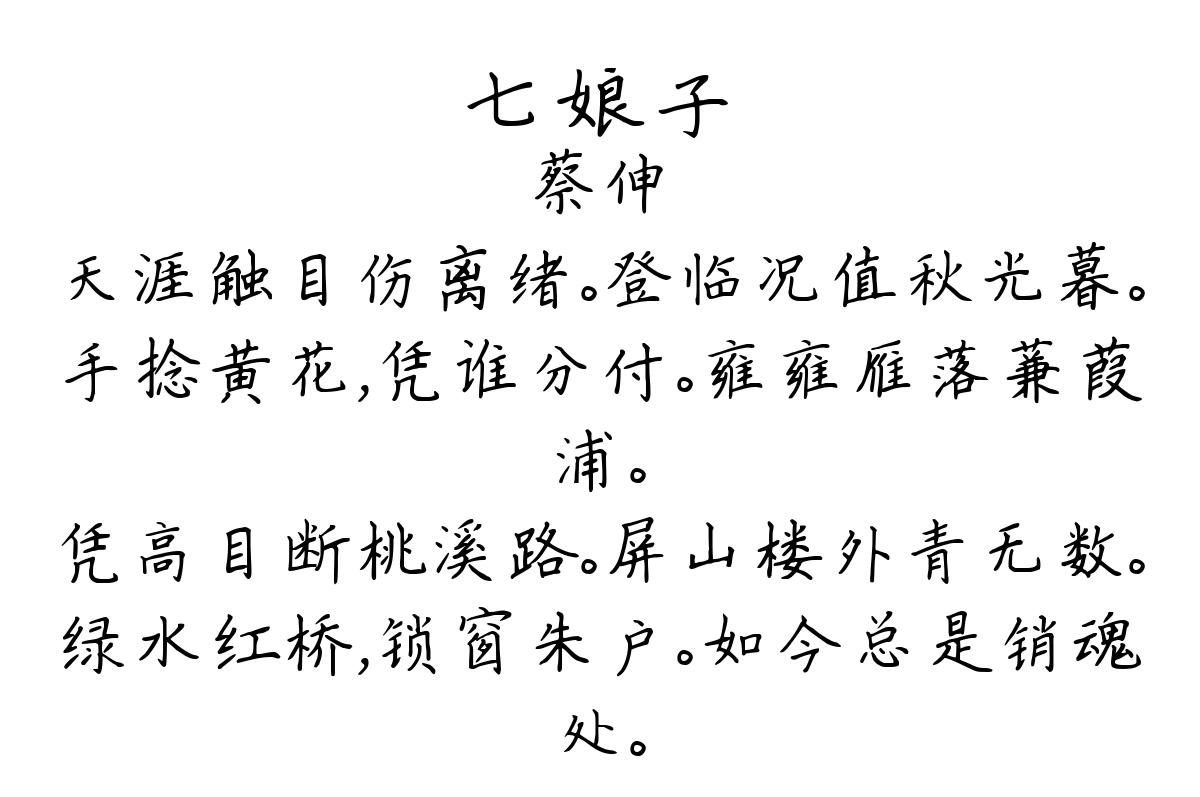 七娘子
蔡伸
天涯触目伤离绪。登临况值秋光暮。
手捻黄花,凭谁分付。雍雍雁落蒹葭
浦。
凭高目断桃溪路。屏山楼外青无数。
绿水红桥,锁窗朱户。如今总是销魂
处。